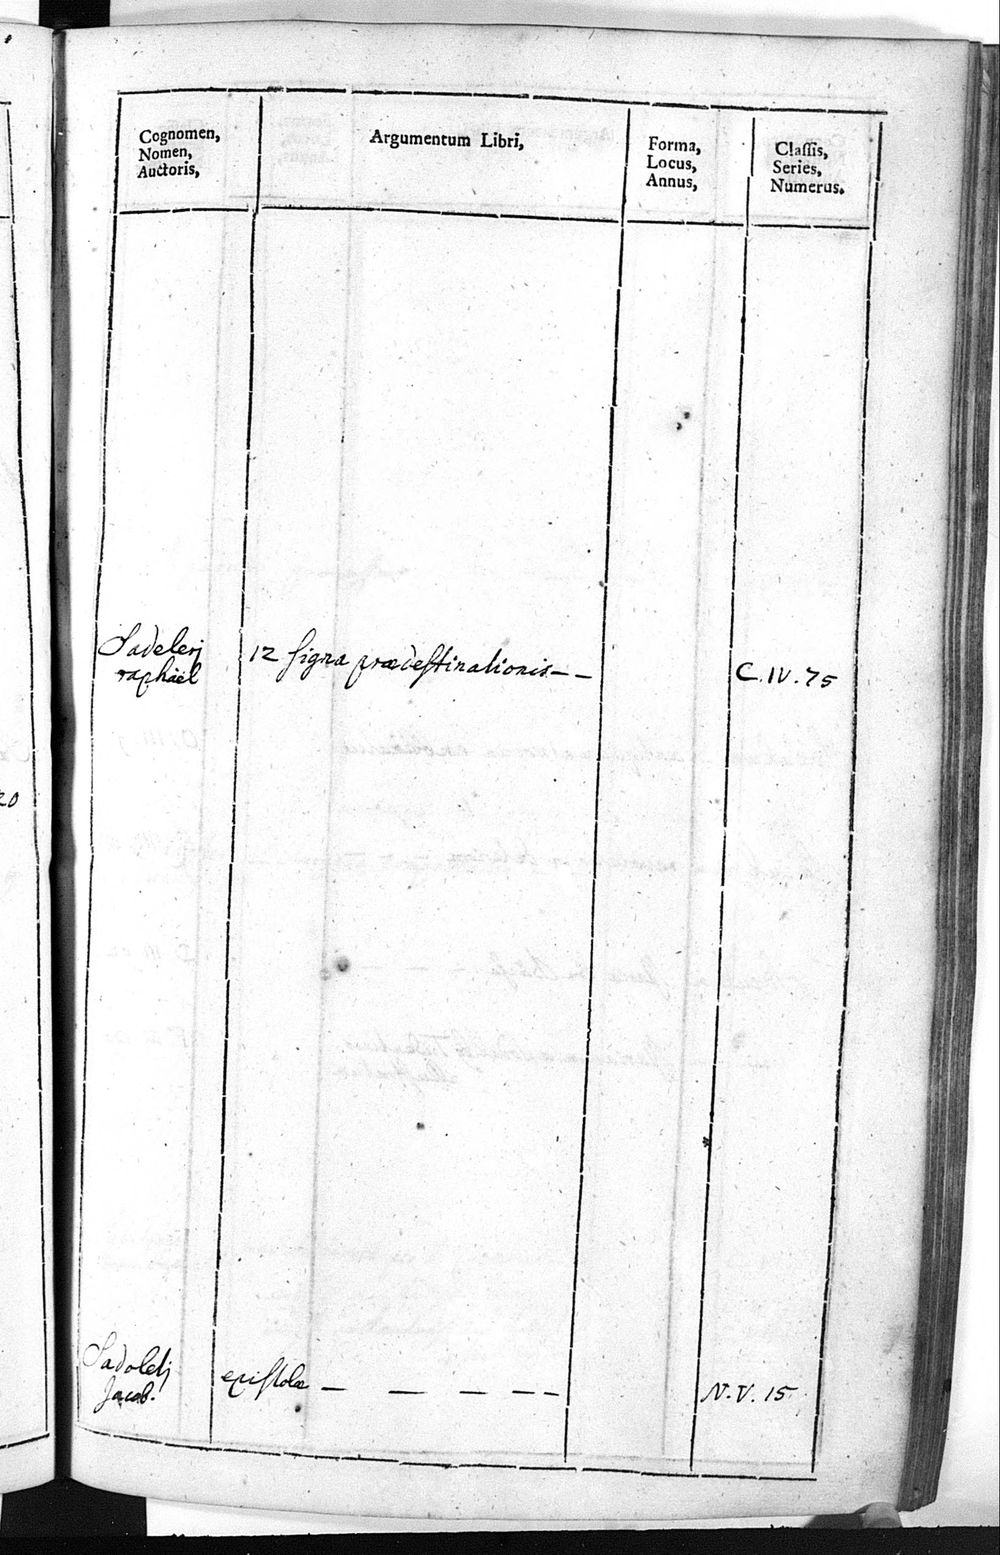 Cognomen,
Nomen,
Auctoris,
Argumentum Libri,
Forma,
Locus,
Annus,
Classis,
Series,
Numerus.
Sadelerj
raphäel
12 signa prædestinationis – –
C. IV. 75
20
Sadoletj
Jacob.
epistolæ – – – – –
N. V. 15